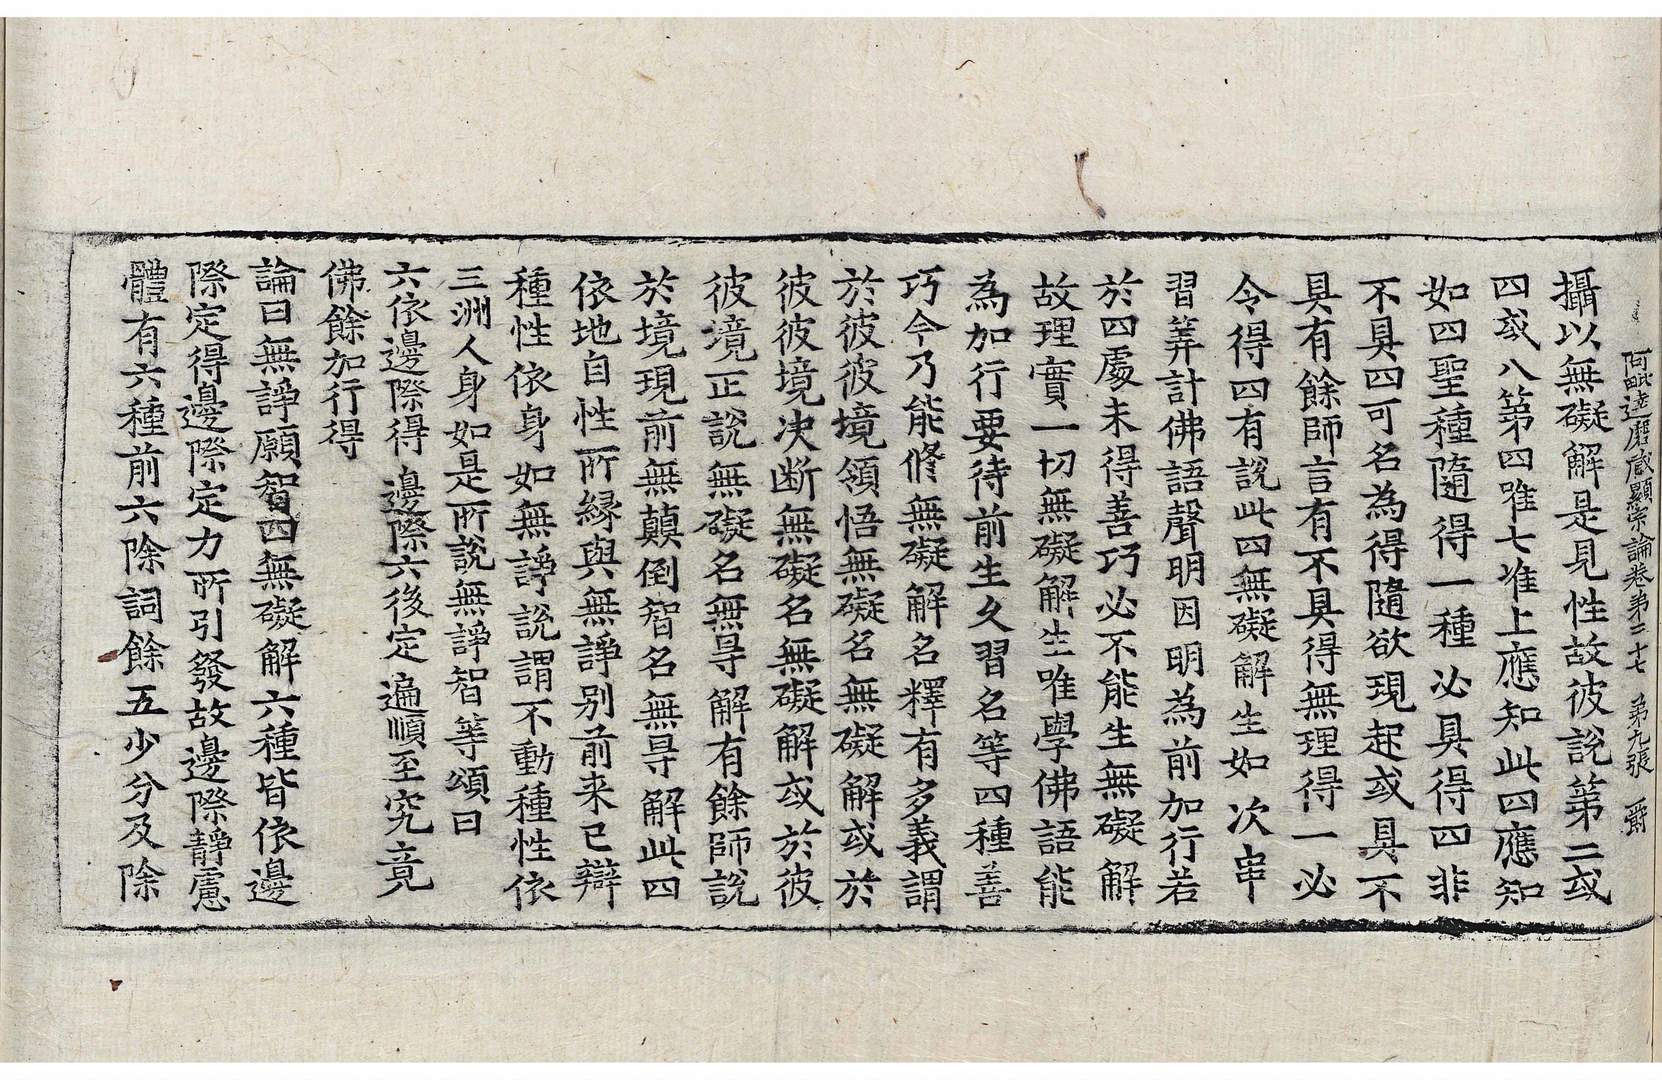 阿毗達磨藏顯宗論卷第二十七 第九張 爵
攝以無礙解是見性故彼說第二或
四或八第四唯七准上應知此四應知
如四聖種隨得一種必具得四非
不具四可名為得隨欲現起或具不
具有餘師言有不具得無理得一必
令得四有說此四無礙解生如次串
習筭計佛語聲明因明為前加行若
於四處未得善巧必不能生無礙解
故理實一切無礙解生唯學佛語能
為加行要待前生久習名等四種善
巧今乃能修無礙解名釋有多義謂
於彼彼境領悟無礙名無礙解或於
彼彼境决断無礙名無礙解或於彼
彼境正說無礙名無㝵解有餘師說
於境現前無顛倒智名無㝵解此四
依地自性所緣與無諍别前来已辯
種性依身如無諍說謂不動種性依
三洲人身如是所說無諍智等頌曰
六依邊際得 邊際六後定 遍順至究竟
佛餘加行得
論曰無諍願智四無礙解六種皆依邊
際定得邊際定力所引發故邊際靜慮
體有六種前六除詞餘五少分及除